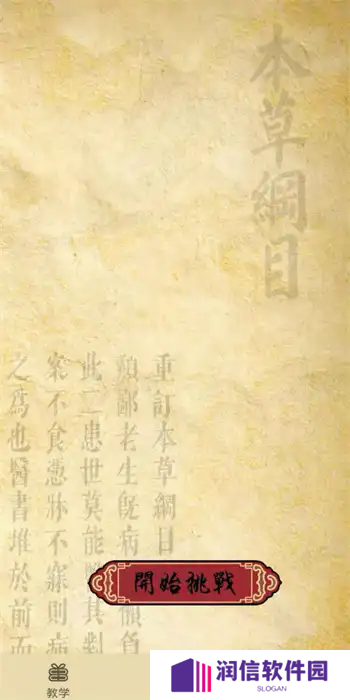 本草綱目
重訂本草綱目
此二患世莫能
案不食憑牀不寐則病
之為也醫書堆於前而
開始挑戰
教学
润信软件园
SLOGAN